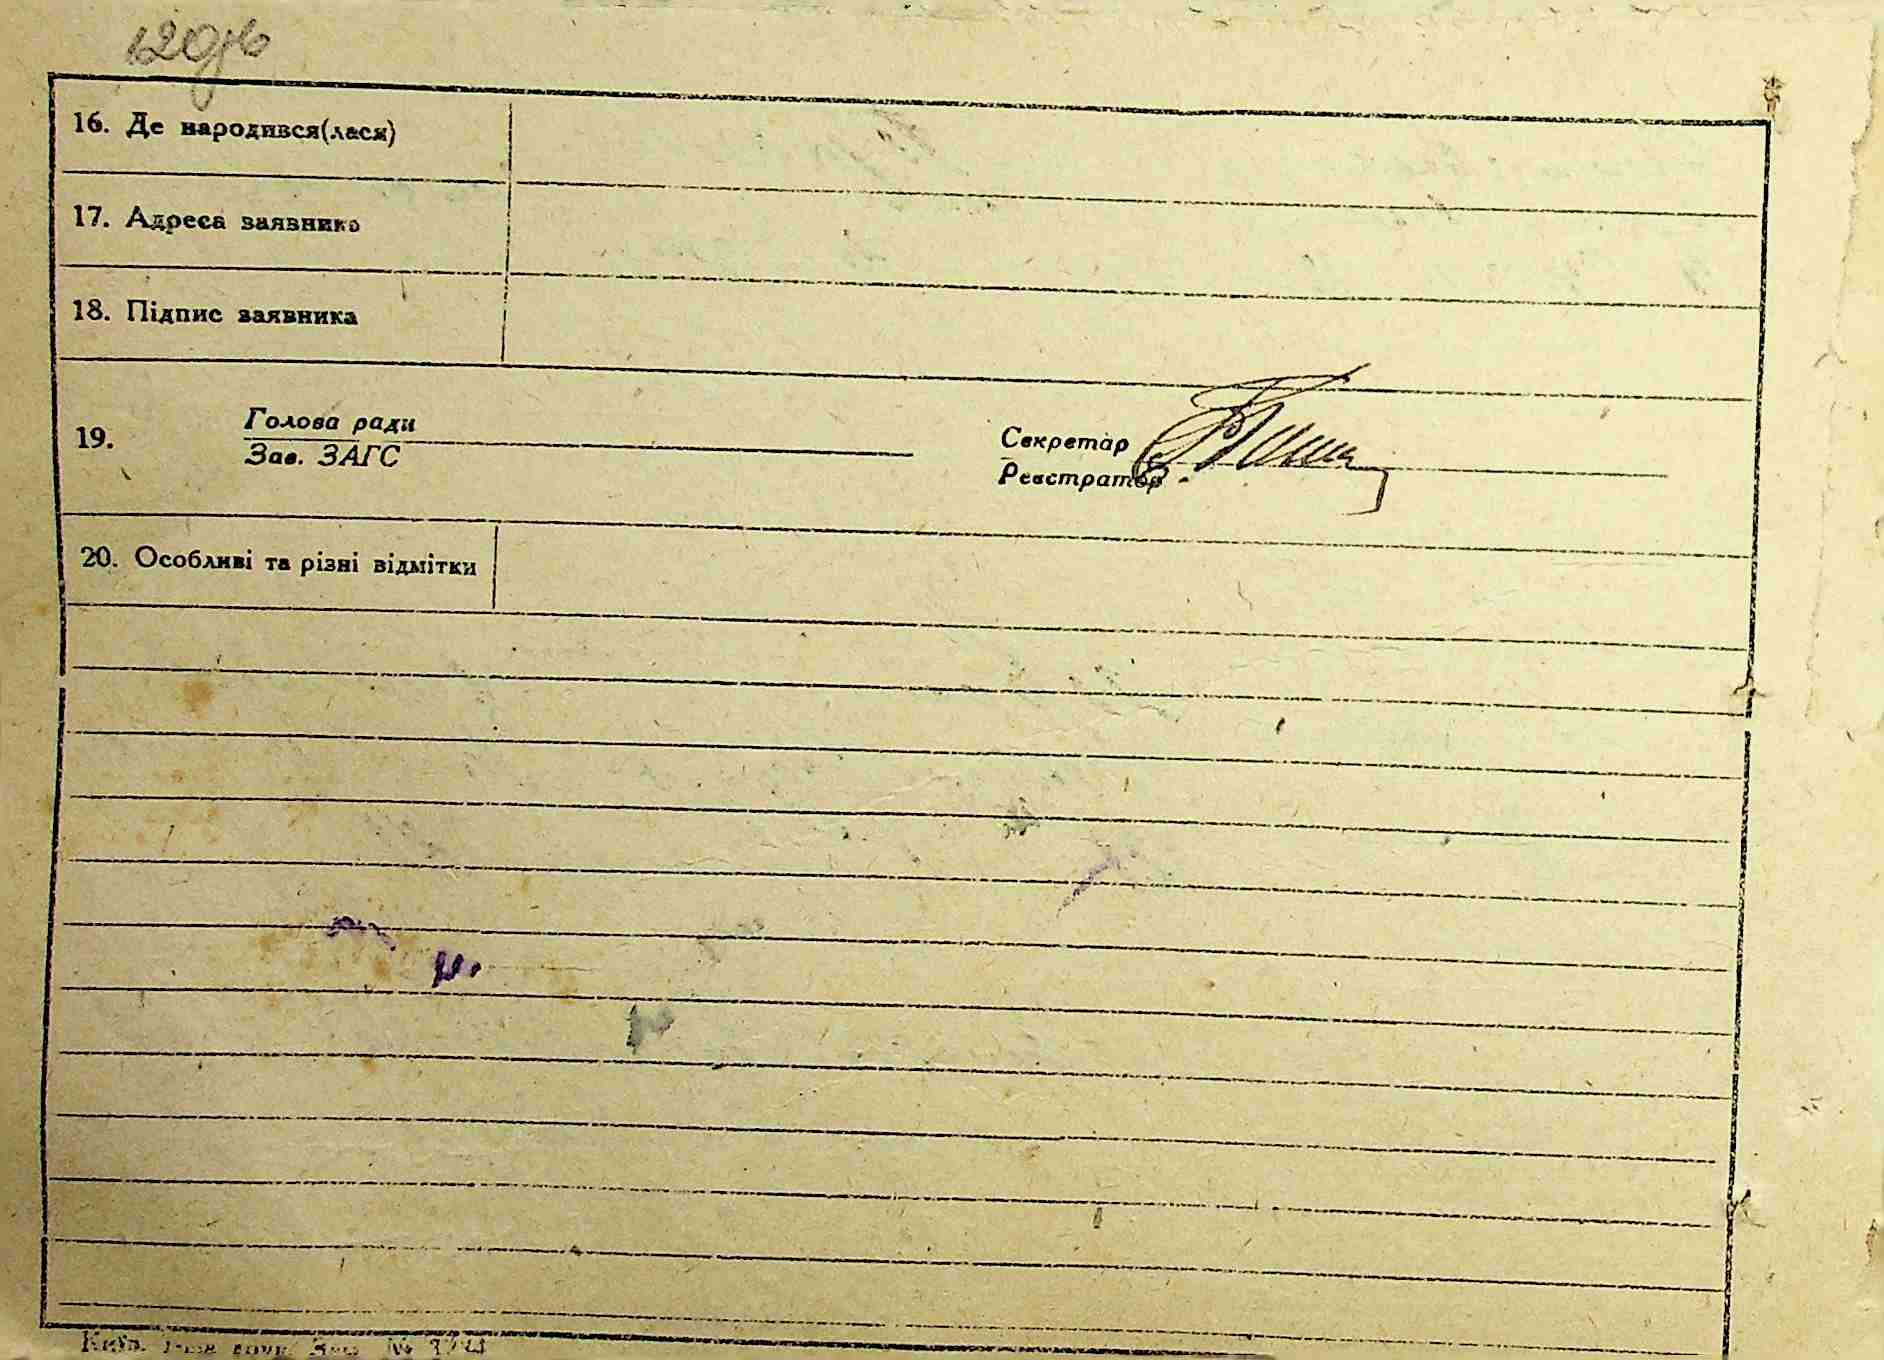 120
16. Де народився(лася)
17. Адреса заявника
18. Підпис заявника
19.
Голова ради
Зав. ЗАГС
Секретар
Реєстратор
20. Особливі та різні відмітки
Київ. Зам. №